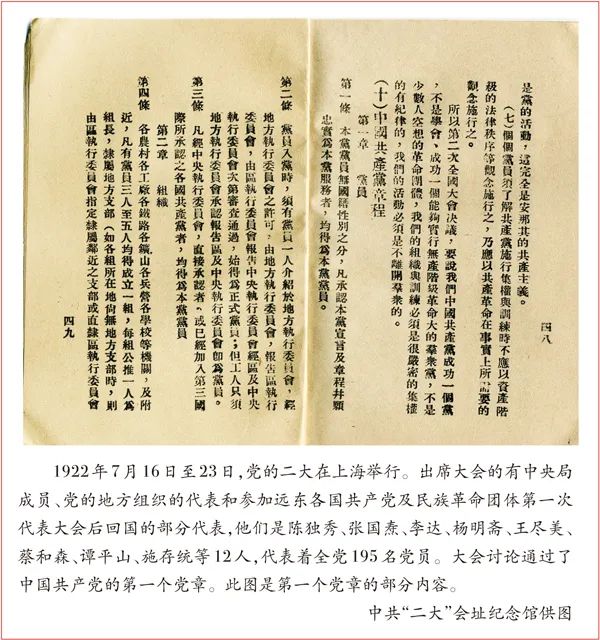 是黨的活動，這完全是安那其的共產主義。
（七）個個黨員須了解共產黨施行集權與訓練時不應以資產階
級的法律秩序等觀念施行之，乃應以共產革命在事實上所需要的
觀念施行之。
所以第二次全國大會決議，要說我們中國共產黨成功一個黨
，不是學會、成功一個能夠實行無產階級革命大的羣衆黨，不是
少數人空想的革命團體，我們的組織與訓練必須是很嚴密的集權
的有紀律的，我們的活動必須是不離開羣衆的。
（十）中國共產黨章程
第一章 黨員
第一條 本黨黨員無國籍性別之分，凡承認本黨宣言及章程幷願
忠實爲本黨服務者，均得爲本黨黨員。
四八
第二條 黨員入黨時，須有黨員一人介紹於地方執行委員會，經
地方執行委員會之許可，由地方執行委員會，報告區執行
委員會，由區執行委員會報告中央執行委員會經區及中央
執行委員會次第審查通過，始得爲正式黨員；但工人只須
地方執行委員會承認報告區及中央執行委員會卽爲黨員。
第三條 凡經中央執行委員會，直接承認者，或已經加入第三國
際所承認之各國共產黨者，均得爲本黨黨員
第二章 組織
第四條 各農村各工廠各鐵路各鑛山各兵營各學校等機關，及附
近，凡有黨員三人至五人均得成立一組，每組公推一人爲
組長，隸屬地方支部（如各組所在地尙無地方支部時，則
由區執行委員會指定隸屬鄰近之支部或直隸區執行委員會
四九
1922年7月16日至23日，党的二大在上海举行。出席大会的有中央局
成员、党的地方组织的代表和参加远东各国共产党及民族革命团体第一次
代表大会后回国的部分代表，他们是陈独秀、张国焘、李达、杨明斋、王尽美、
蔡和森、谭平山、施存统等12人，代表着全党195名党员。大会讨论通过了
中国共产党的第一个党章。此图是第一个党章的部分内容。
中共“二大”会址纪念馆供图